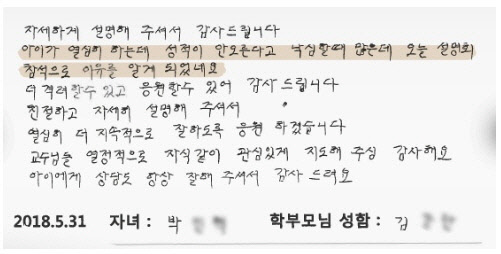 자세하게 설명해 주셔서 감사드립니다
아이가 열심히 하는데 성적이 안오른다고 낙심할때 많은데 오늘 설명회
참석으로 이유를 알게 되었네요
더 격려할수 있고 응원할수 있어 감사 드립니다
친절하고 자세히 설명해 주셔서
열심히 더 지속적으로 잘하도록 응원 하겠습니다
교수님들 열정적으로 자식같이 관심있게 지도해 주심 감사해요
아이에게 상담도 항상 잘해 주셔서 감사 드려요
2018.5.31 자녀 : 박 학부모님 성함 : 김